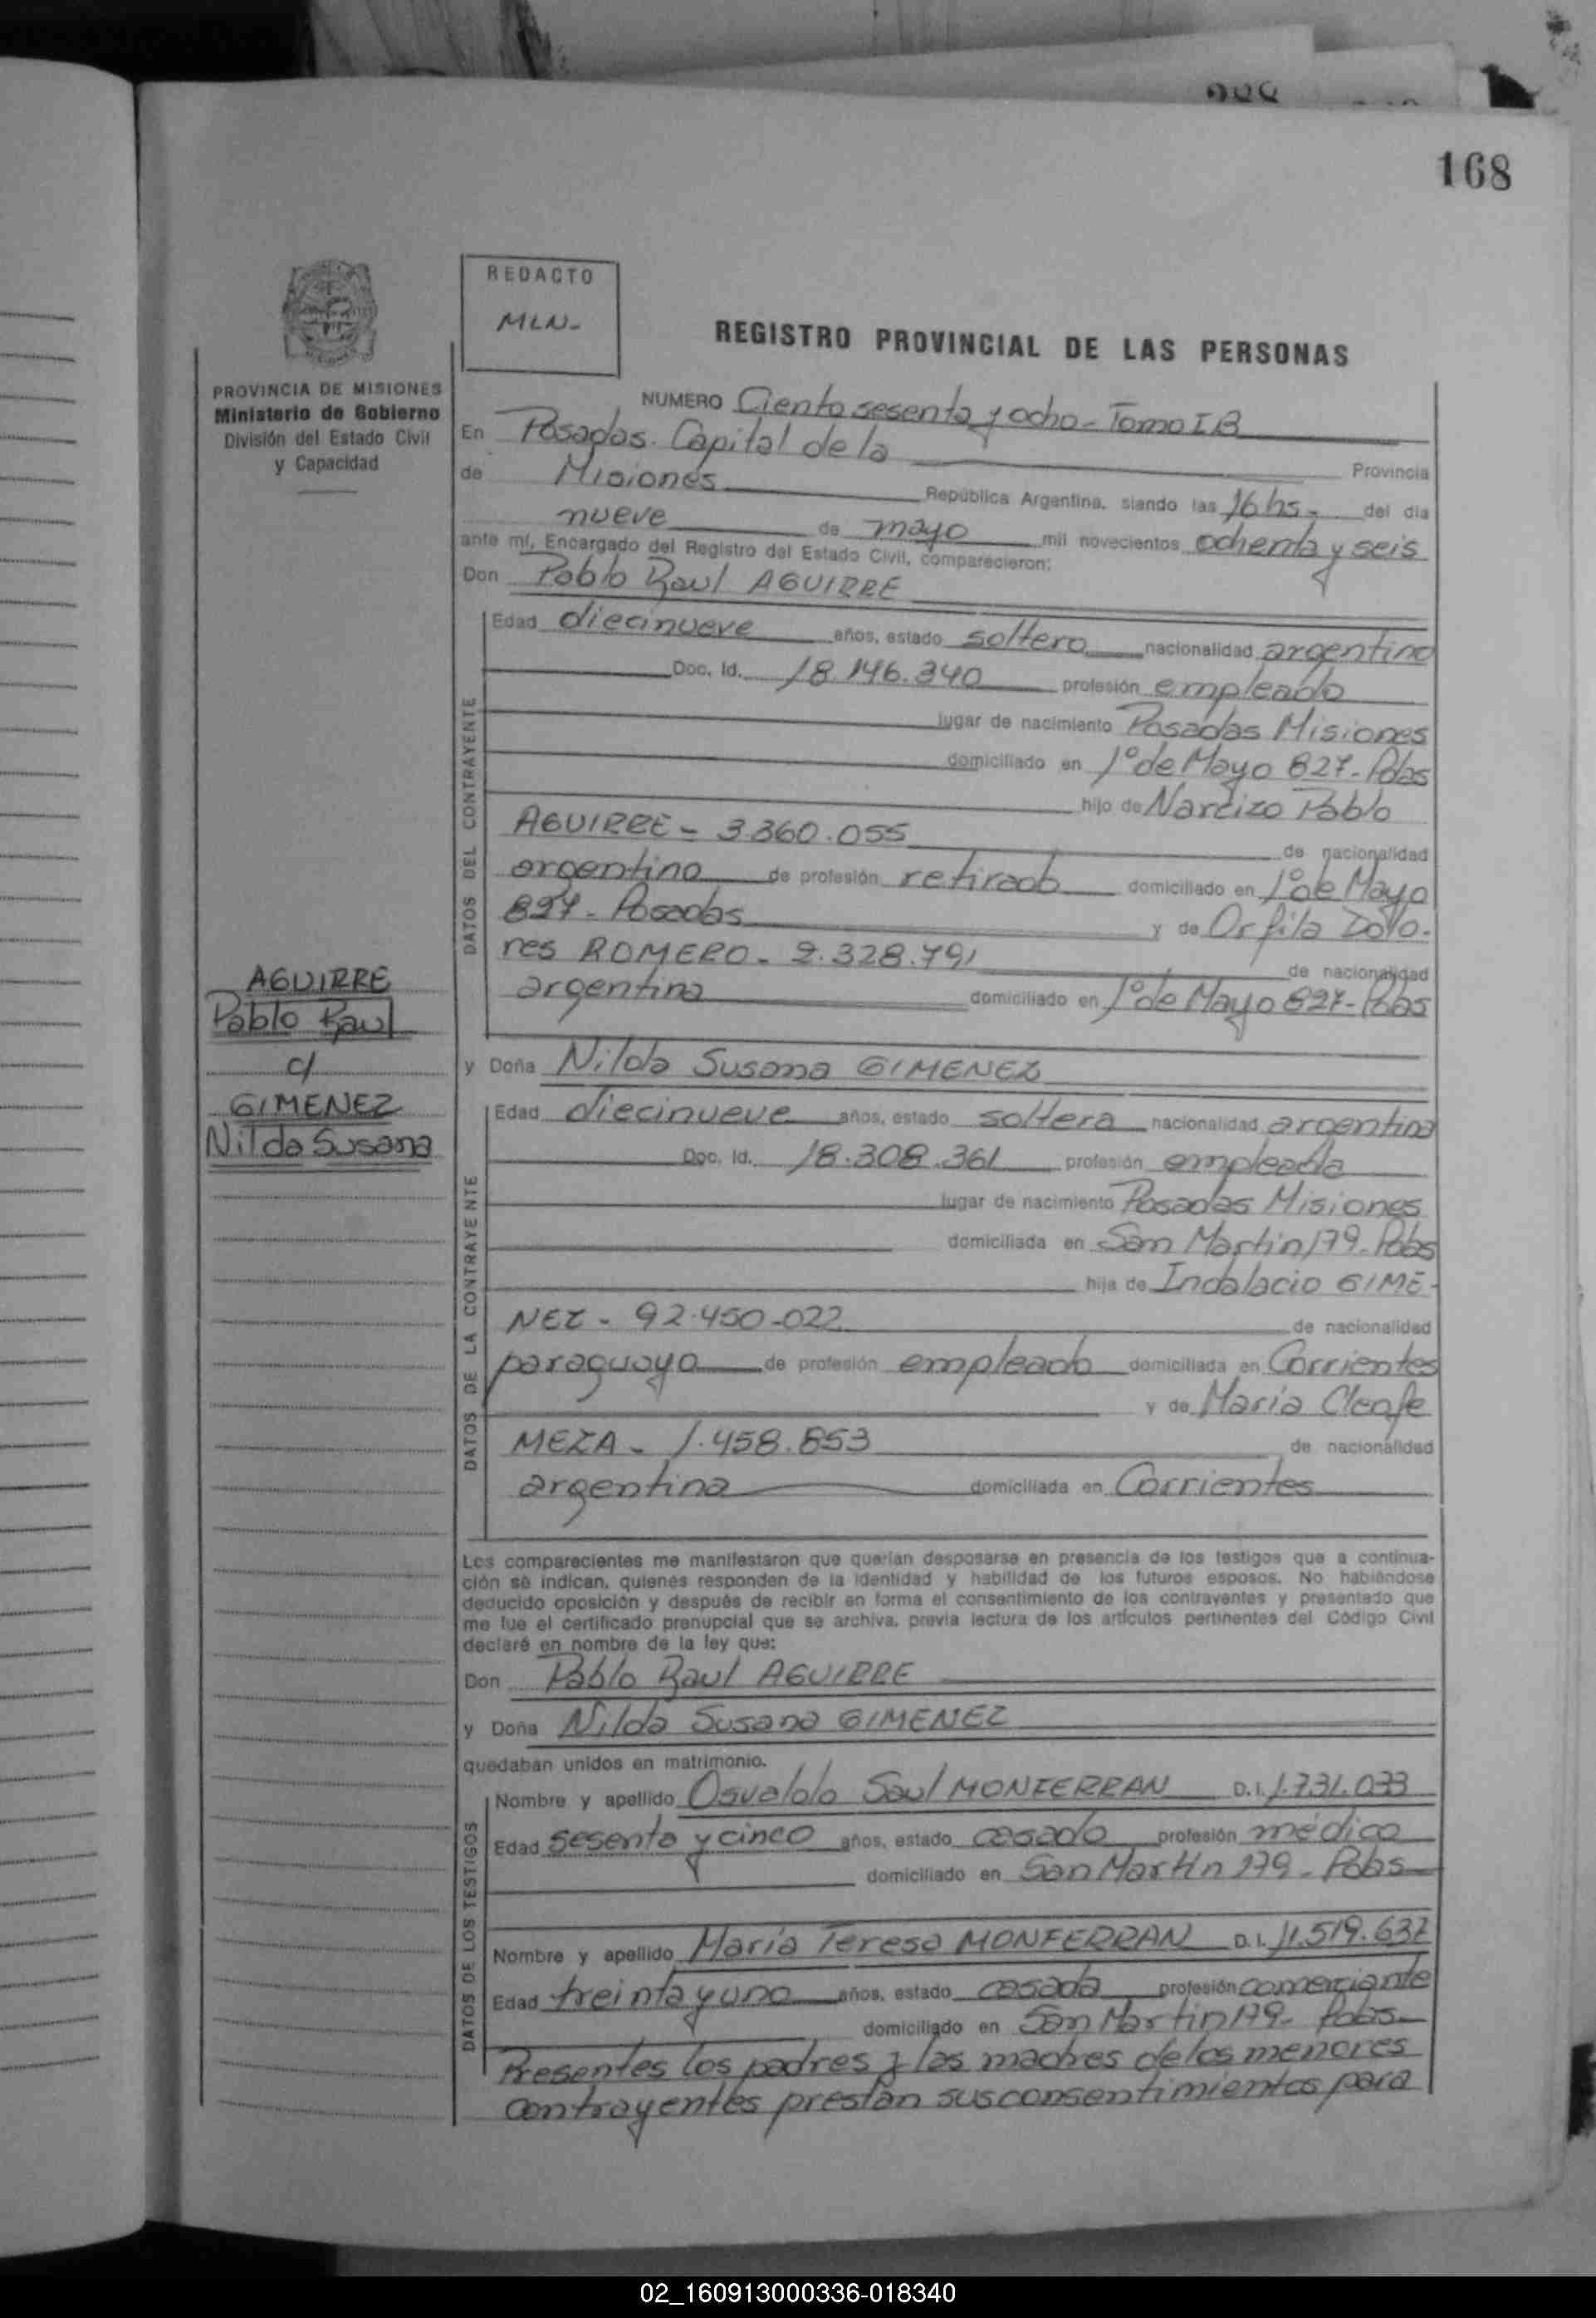 168
REDACTO
MLN-
REGISTRO PROVINCIAL DE LAS PERSONAS
PROVINCIA DE MISIONES
Ministerio de Gobierno
División del Estado Civil
y Capacidad
NUMERO Ciento sesenta y ocho - Tomo I B
En Posadas. Capital de la Provincia
de Misiones República Argentina, siendo las 16 hs. del día
nueve de mayo mil novecientos ochenta y seis
ante mí, Encargado del Registro del Estado Civil, comparecieron:
Don Pablo Raul AGUIRRE
DATOS DEL CONTRAYENTE
Edad diecinueve años, estado soltero nacionalidad argentino
Doc. Id. 18.146.340 profesión empleado
lugar de nacimiento Posadas Misiones
domiciliado en 1º de Mayo 827 - Pdas
hijo de Narcizo Pablo
AGUIRRE - 3.360.055 de nacionalidad
argentino de profesión retirado domiciliado en 1º de Mayo
827 - Posadas y de Orfila Dolo-
res ROMERO - 2.328.791 de nacionalidad
argentina domiciliado en 1º de Mayo 827 - Pdas
AGUIRRE
Pablo Raul
c/
GIMENEZ
Nilda Susana
y Doña Nilda Susana GIMENEZ
DATOS DE LA CONTRAYENTE
Edad diecinueve años, estado soltera nacionalidad argentina
Doc. Id. 18.308.361 profesión empleada
lugar de nacimiento Posadas Misiones
domiciliada en San Martin 179 - Pdas
hija de Indalacio GIME-
NEZ - 92.450.022 de nacionalidad
paraguaya de profesión empleado domiciliada en Corrientes
y de Maria Cleofe
MEZA - 1.458.853 de nacionalidad
argentina domiciliada en Corrientes
Los comparecientes me manifestaron que querían desposarse en presencia de los testigos que a continua-
ción se indican, quienes responden de la identidad y habilidad de los futuros esposos. No habiéndose
deducido oposición y después de recibir en forma el consentimiento de los contrayentes y presentado que
me fue el certificado prenupcial que se archiva, previa lectura de los artículos pertinentes del Código Civil
declaré en nombre de la ley que:
Don Pablo Raul AGUIRRE
y Doña Nilda Susana GIMENEZ
quedaban unidos en matrimonio.
DATOS DE LOS TESTIGOS
Nombre y apellido Osvaldo Saul MONFERRAN D.I. 1.731.033
Edad sesenta y cinco años, estado casado profesión médico
domiciliado en San Martin 179 - Pdas
Nombre y apellido María Teresa MONFERRAN D.I. 11.519.637
Edad treinta y uno años, estado casada profesión comerciante
domiciliado en San Martin 179 - Pdas.
Presentes los padres y las madres de los menores
contrayentes prestan sus consentimientos para
02_160913000336-018340